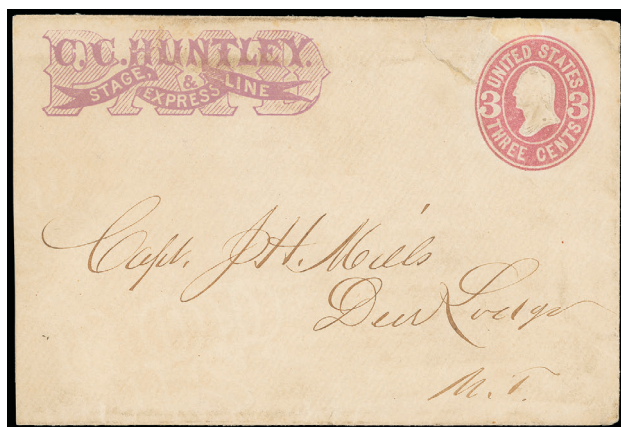 C. C. HUNTLEY.
PAID
STAGE, & EXPRESS LINE
UNITED STATES
3 3
THREE CENTS
Capt. J H. Mills
Deer Lodge
M. T.